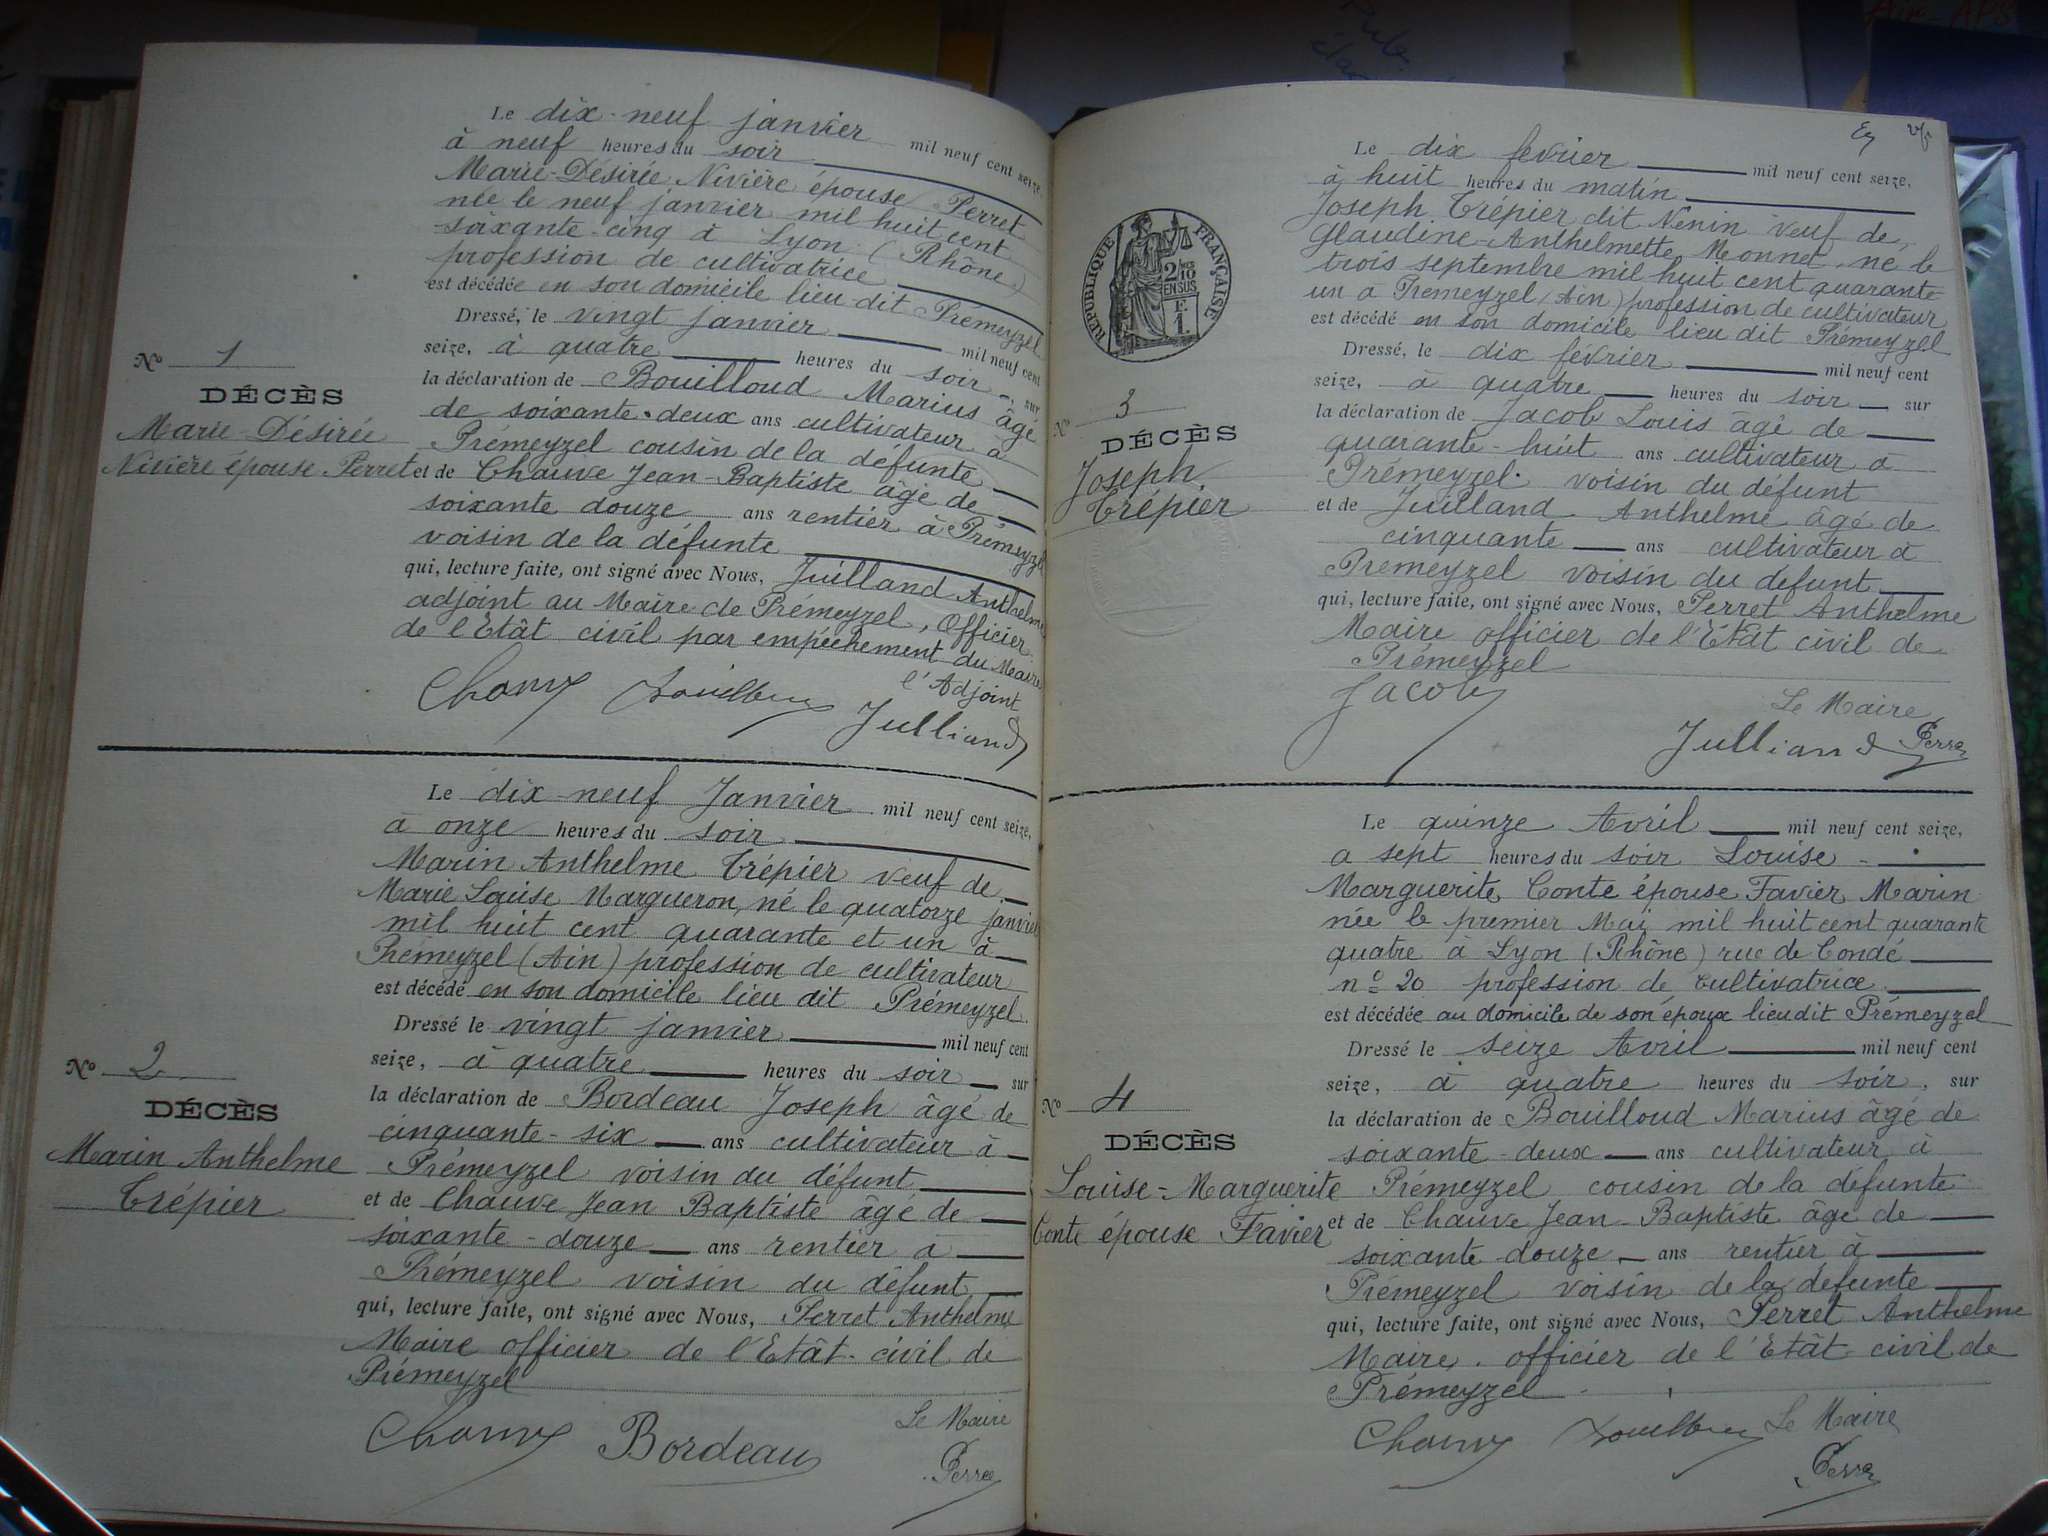 Le dix-neuf janvier mil neuf cent seize,
à neuf heures du soir
Marie-Désirée Nivière épouse Perret
née le neuf janvier mil huit cent
soixante-cinq à Lyon (Rhône)
profession de cultivatrice
est décédée en son domicile lieu-dit Prémeyzel
Dressé, le vingt janvier mil neuf cent
seize, à quatre heures du soir, sur
la déclaration de Bouilloud Marius âgé
de soixante-deux ans cultivateur à
Prémeyzel cousin de la defunte
et de Chauve Jean-Baptiste âgé de
soixante douze ans rentier à Prémeyzel
voisin de la défunte
qui, lecture faite, ont signé avec Nous, Juilland Anthelme
adjoint au Maire de Prémeyzel, Officier
de l'Etât civil par empêchement du Maire
l'Adjoint
Julliand
No 1
DÉCÈS
Marie-Désirée
Nivière épouse Perret
Le dix-neuf Janvier mil neuf cent seize,
à onze heures du soir
Marin Anthelme Trépier veuf de
Marie Louise Margueron, né le quatorze janvier
mil huit cent quarante et un à
Prémeyzel (Ain) profession de cultivateur
est décédé en son domicile lieu dit Prémeyzel
Dressé le vingt janvier mil neuf cent
seize, à quatre heures du soir sur
la déclaration de Bordeau Joseph âgé de
cinquante-six ans cultivateur à
Prémeyzel voisin du défunt
et de Chauve Jean Baptiste âgé de
soixante-douze ans rentier à
Prémeyzel voisin du défunt
qui, lecture faite, ont signé avec Nous, Perret Anthelme
Maire officier de l'Etât-civil de
Prémeyzel
Bordeau
Le Maire
Perret
No 2
DÉCÈS
Marin Anthelme
Trépier
Le dix fevrier mil neuf cent seize,
à huit heures du matin
Joseph Trépier dit Nenin veuf de
Glaudine-Anthelmette Monnet né le
trois septembre mil huit cent quarante
un à Prémeyzel (Ain) profession de cultivateur
est décédé en son domicile lieu dit Prémeyzel
Dressé, le dix février mil neuf cent
seize, à quatre heures du soir sur
la déclaration de Jacob Louis âgé de
quarante-huit ans cultivateur à
Prémeyzel voisin du défunt
et de Juilland Anthelme âgé de
cinquante ans cultivateur à
Prémeyzel voisin du defunt
qui, lecture faite, ont signé avec Nous, Perret Anthelme
Maire officier de l'Etat civil de
Prémeyzel
Jacob
Le Maire
Julliand Perret
RÉPUBLIQUE FRANÇAISE
2/10
EN SUS
E
1.
No 3
DÉCÈS
Joseph
Trépier
Le quinze Avril mil neuf cent seize,
a sept heures du soir Louise
Marguerite Conte épouse Favier Marin
née le premier Mai mil huit cent quarante
quatre à Lyon (Rhône) rue de Condé
no 20 profession de cultivatrice
est décédée au domicile de son époux lieu dit Prémeyzel
Dressé le seize Avril mil neuf cent
seize, à quatre heures du soir, sur
la déclaration de Bouilloud Marius âgé de
soixante-deux ans cultivateur à
Prémeyzel cousin de la défunte
et de Chauve Jean-Baptiste âgé de
soixante douze ans rentier à
Prémeyzel voisin de la défunte
qui, lecture faite, ont signé avec Nous, Perret Anthelme
Maire officier de l'Etât civil de
Prémeyzel
Le Maire
Perret
No 4
DÉCÈS
Louise-Marguerite
Conte épouse Favier